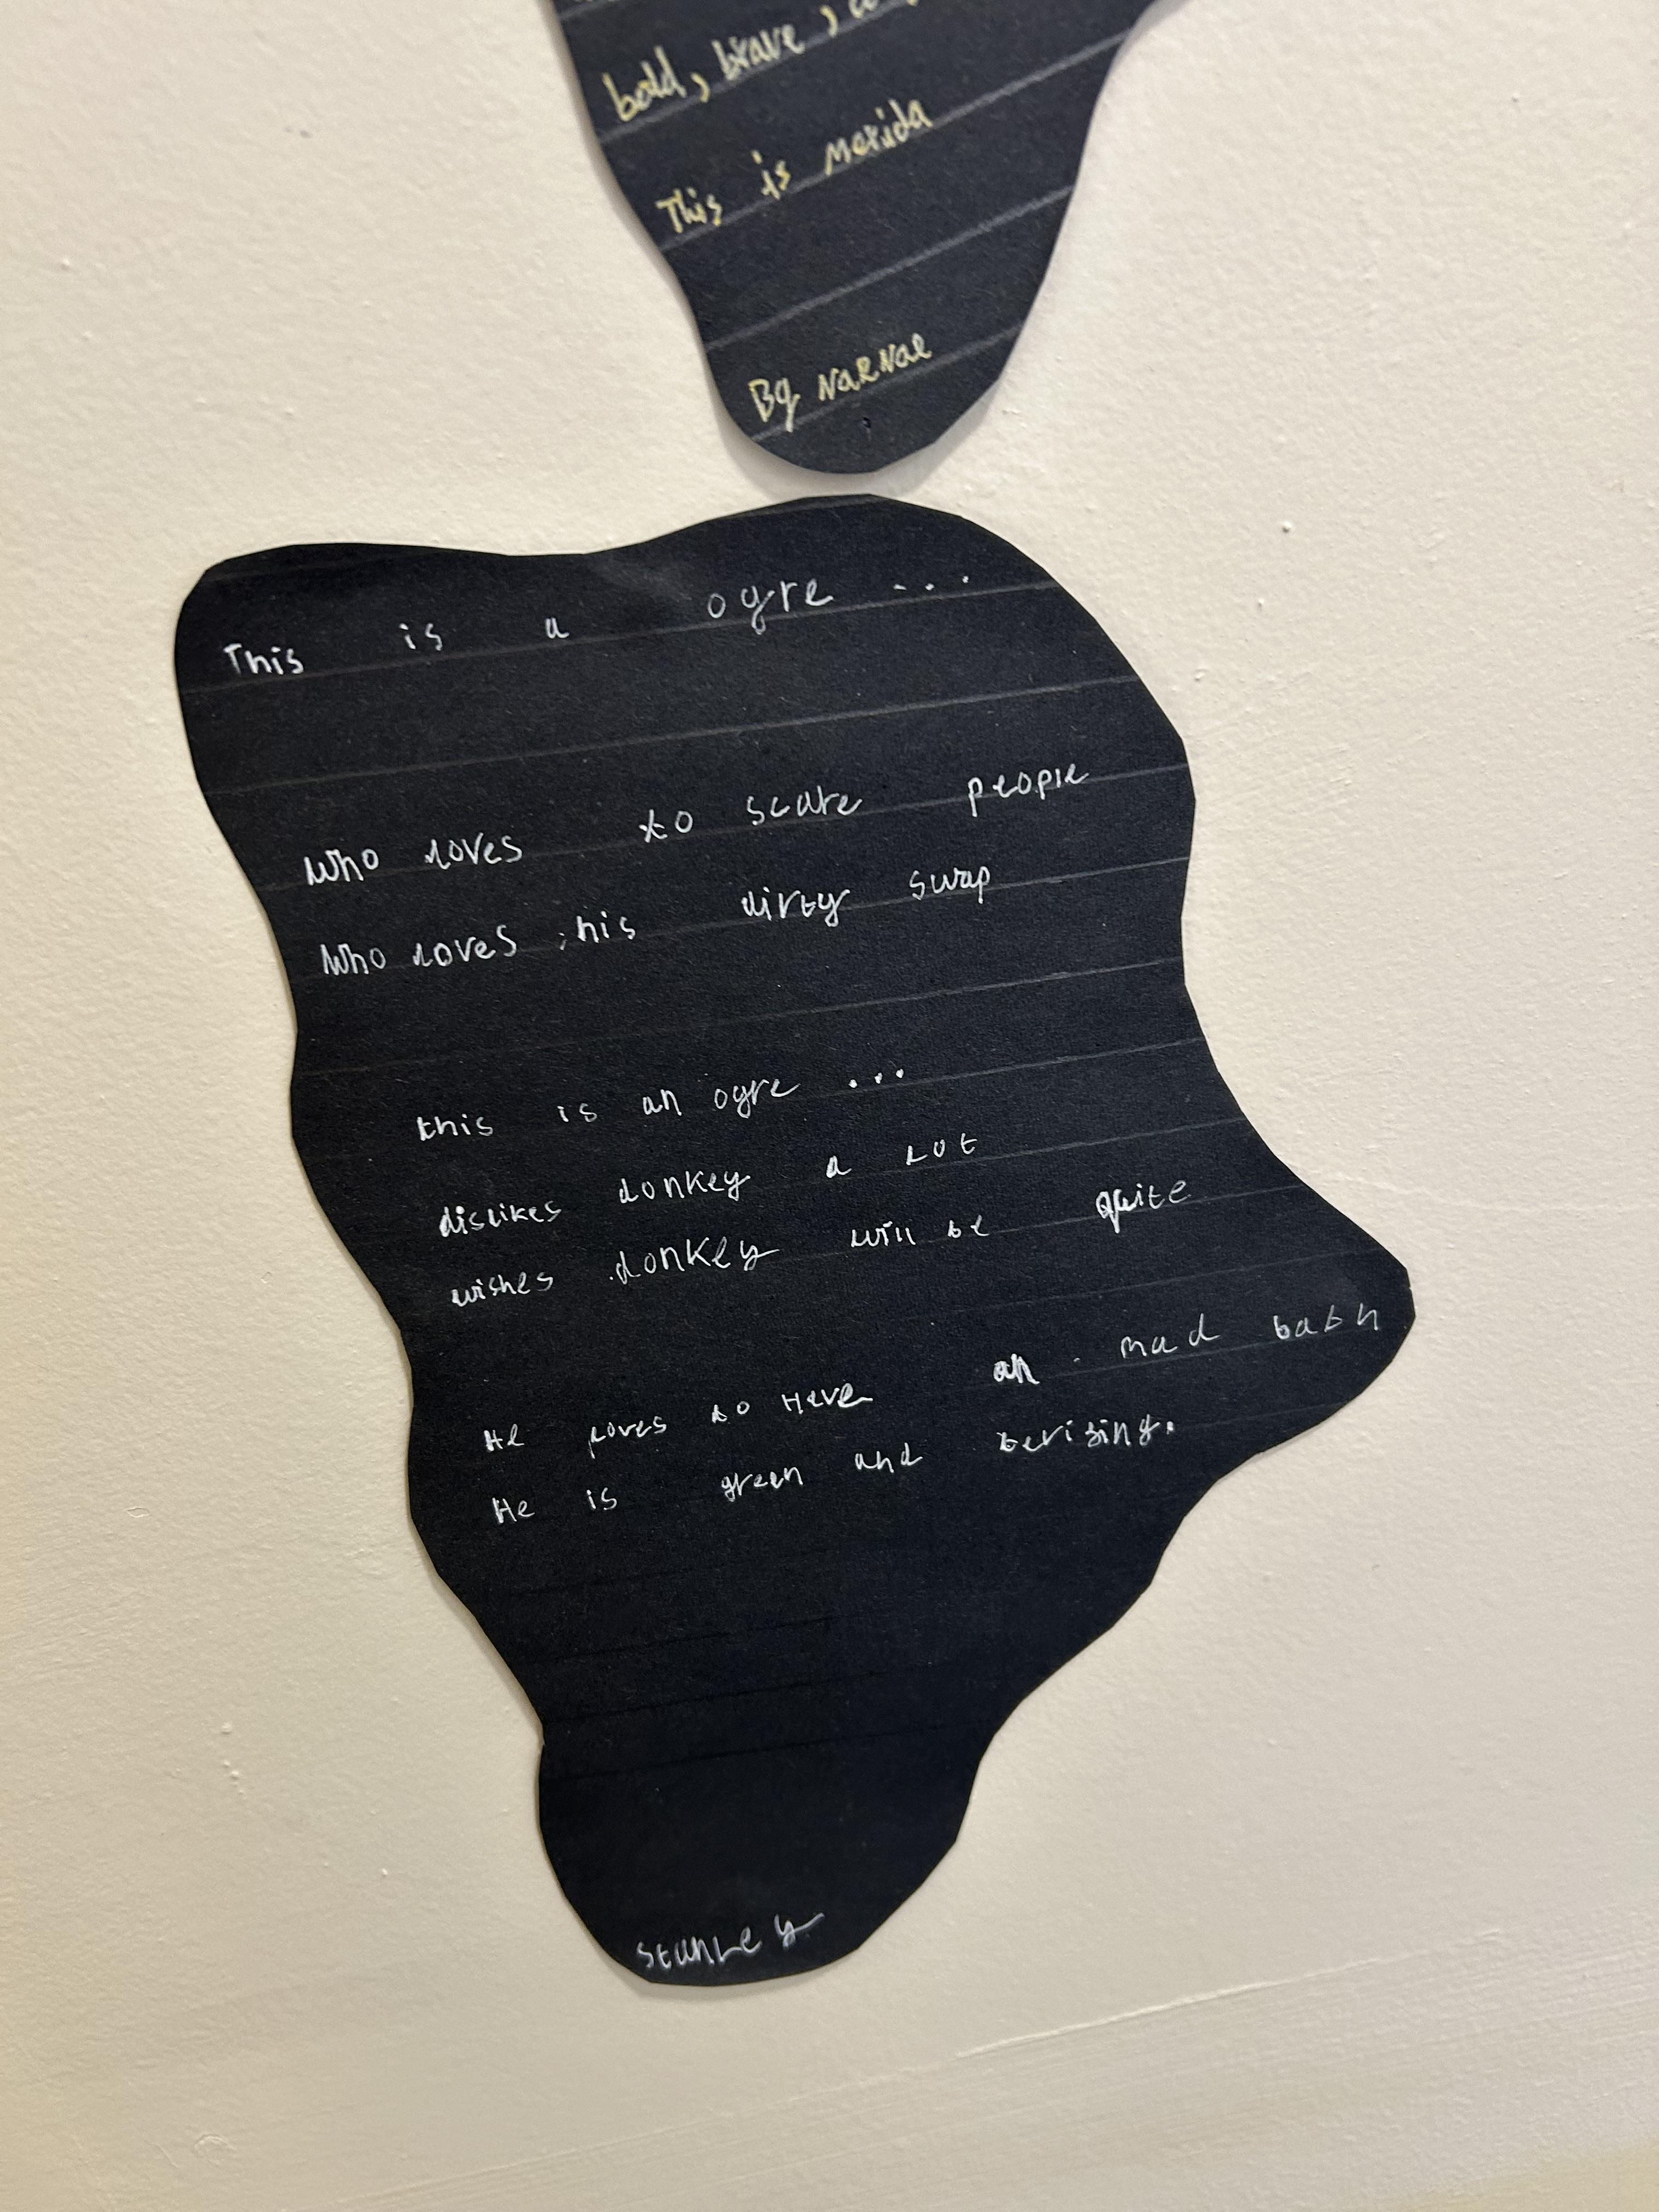 bold, brave,
This is Merida
By NarNae
This is a ogre ...
Who loves to scare people
Who loves his dirty swap
this is an ogre ...
dislikes donkey a lot
wishes donkey will be quite
He loves to Have an mad bath
He is green and terifing.
Stanley